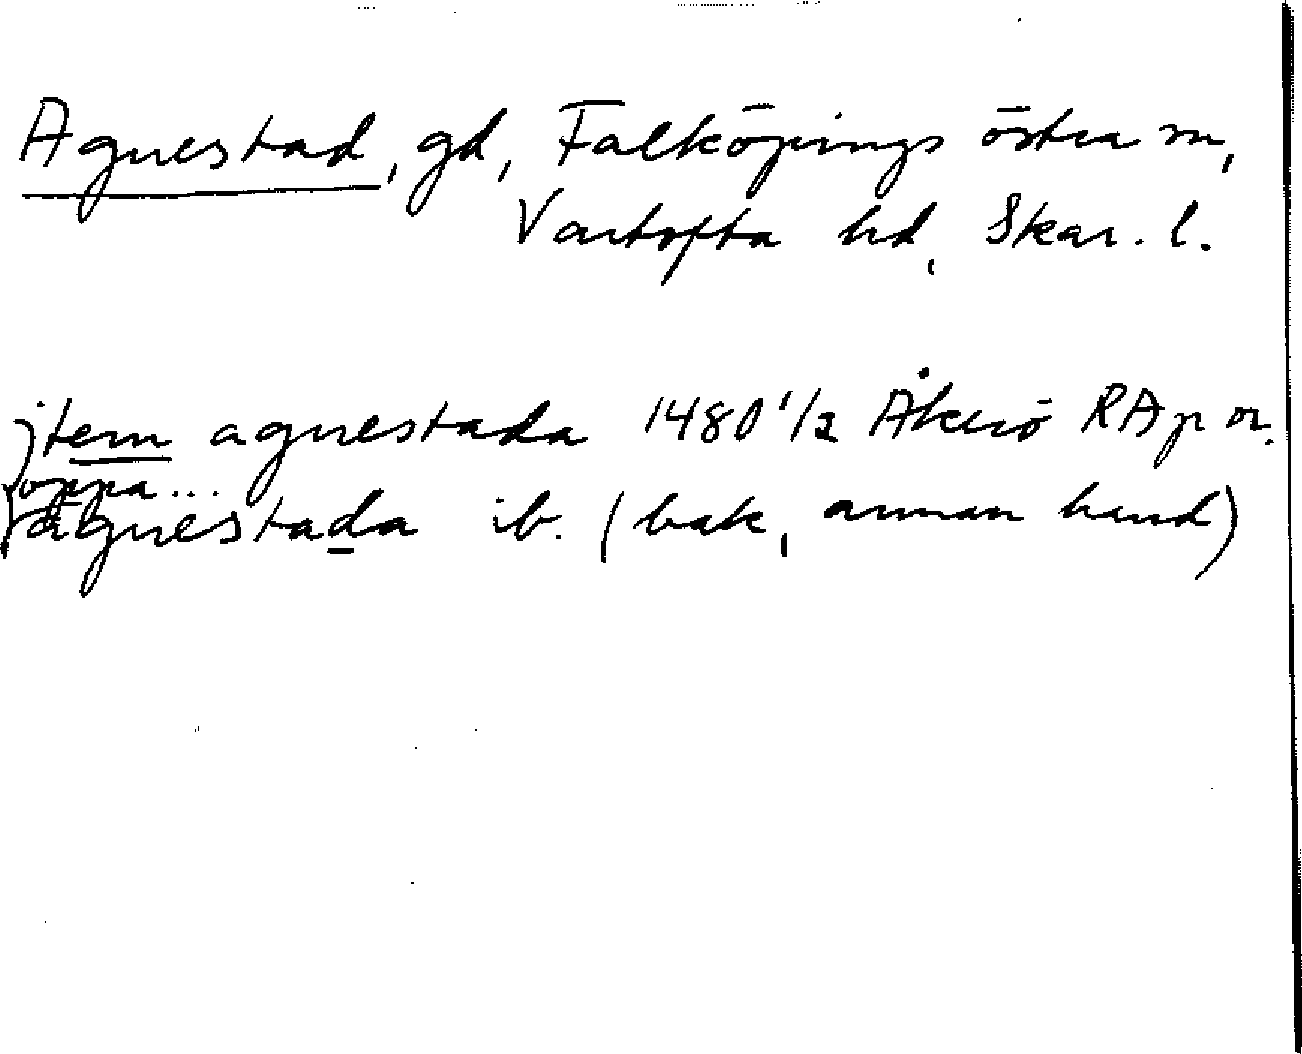 Agnestad, gd, Falköpings östra sn,
Vartofta hd, Skar. l.
jtem agnestada 1480 1/2 Åkerö RAp or.
oppa...
agnestada ib. (bak, annan hand)